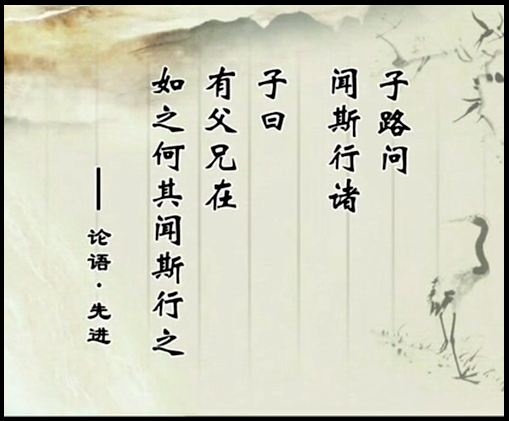 子路问
闻斯行诸
子曰
有父兄在
如之何其闻斯行之
——论语·先进